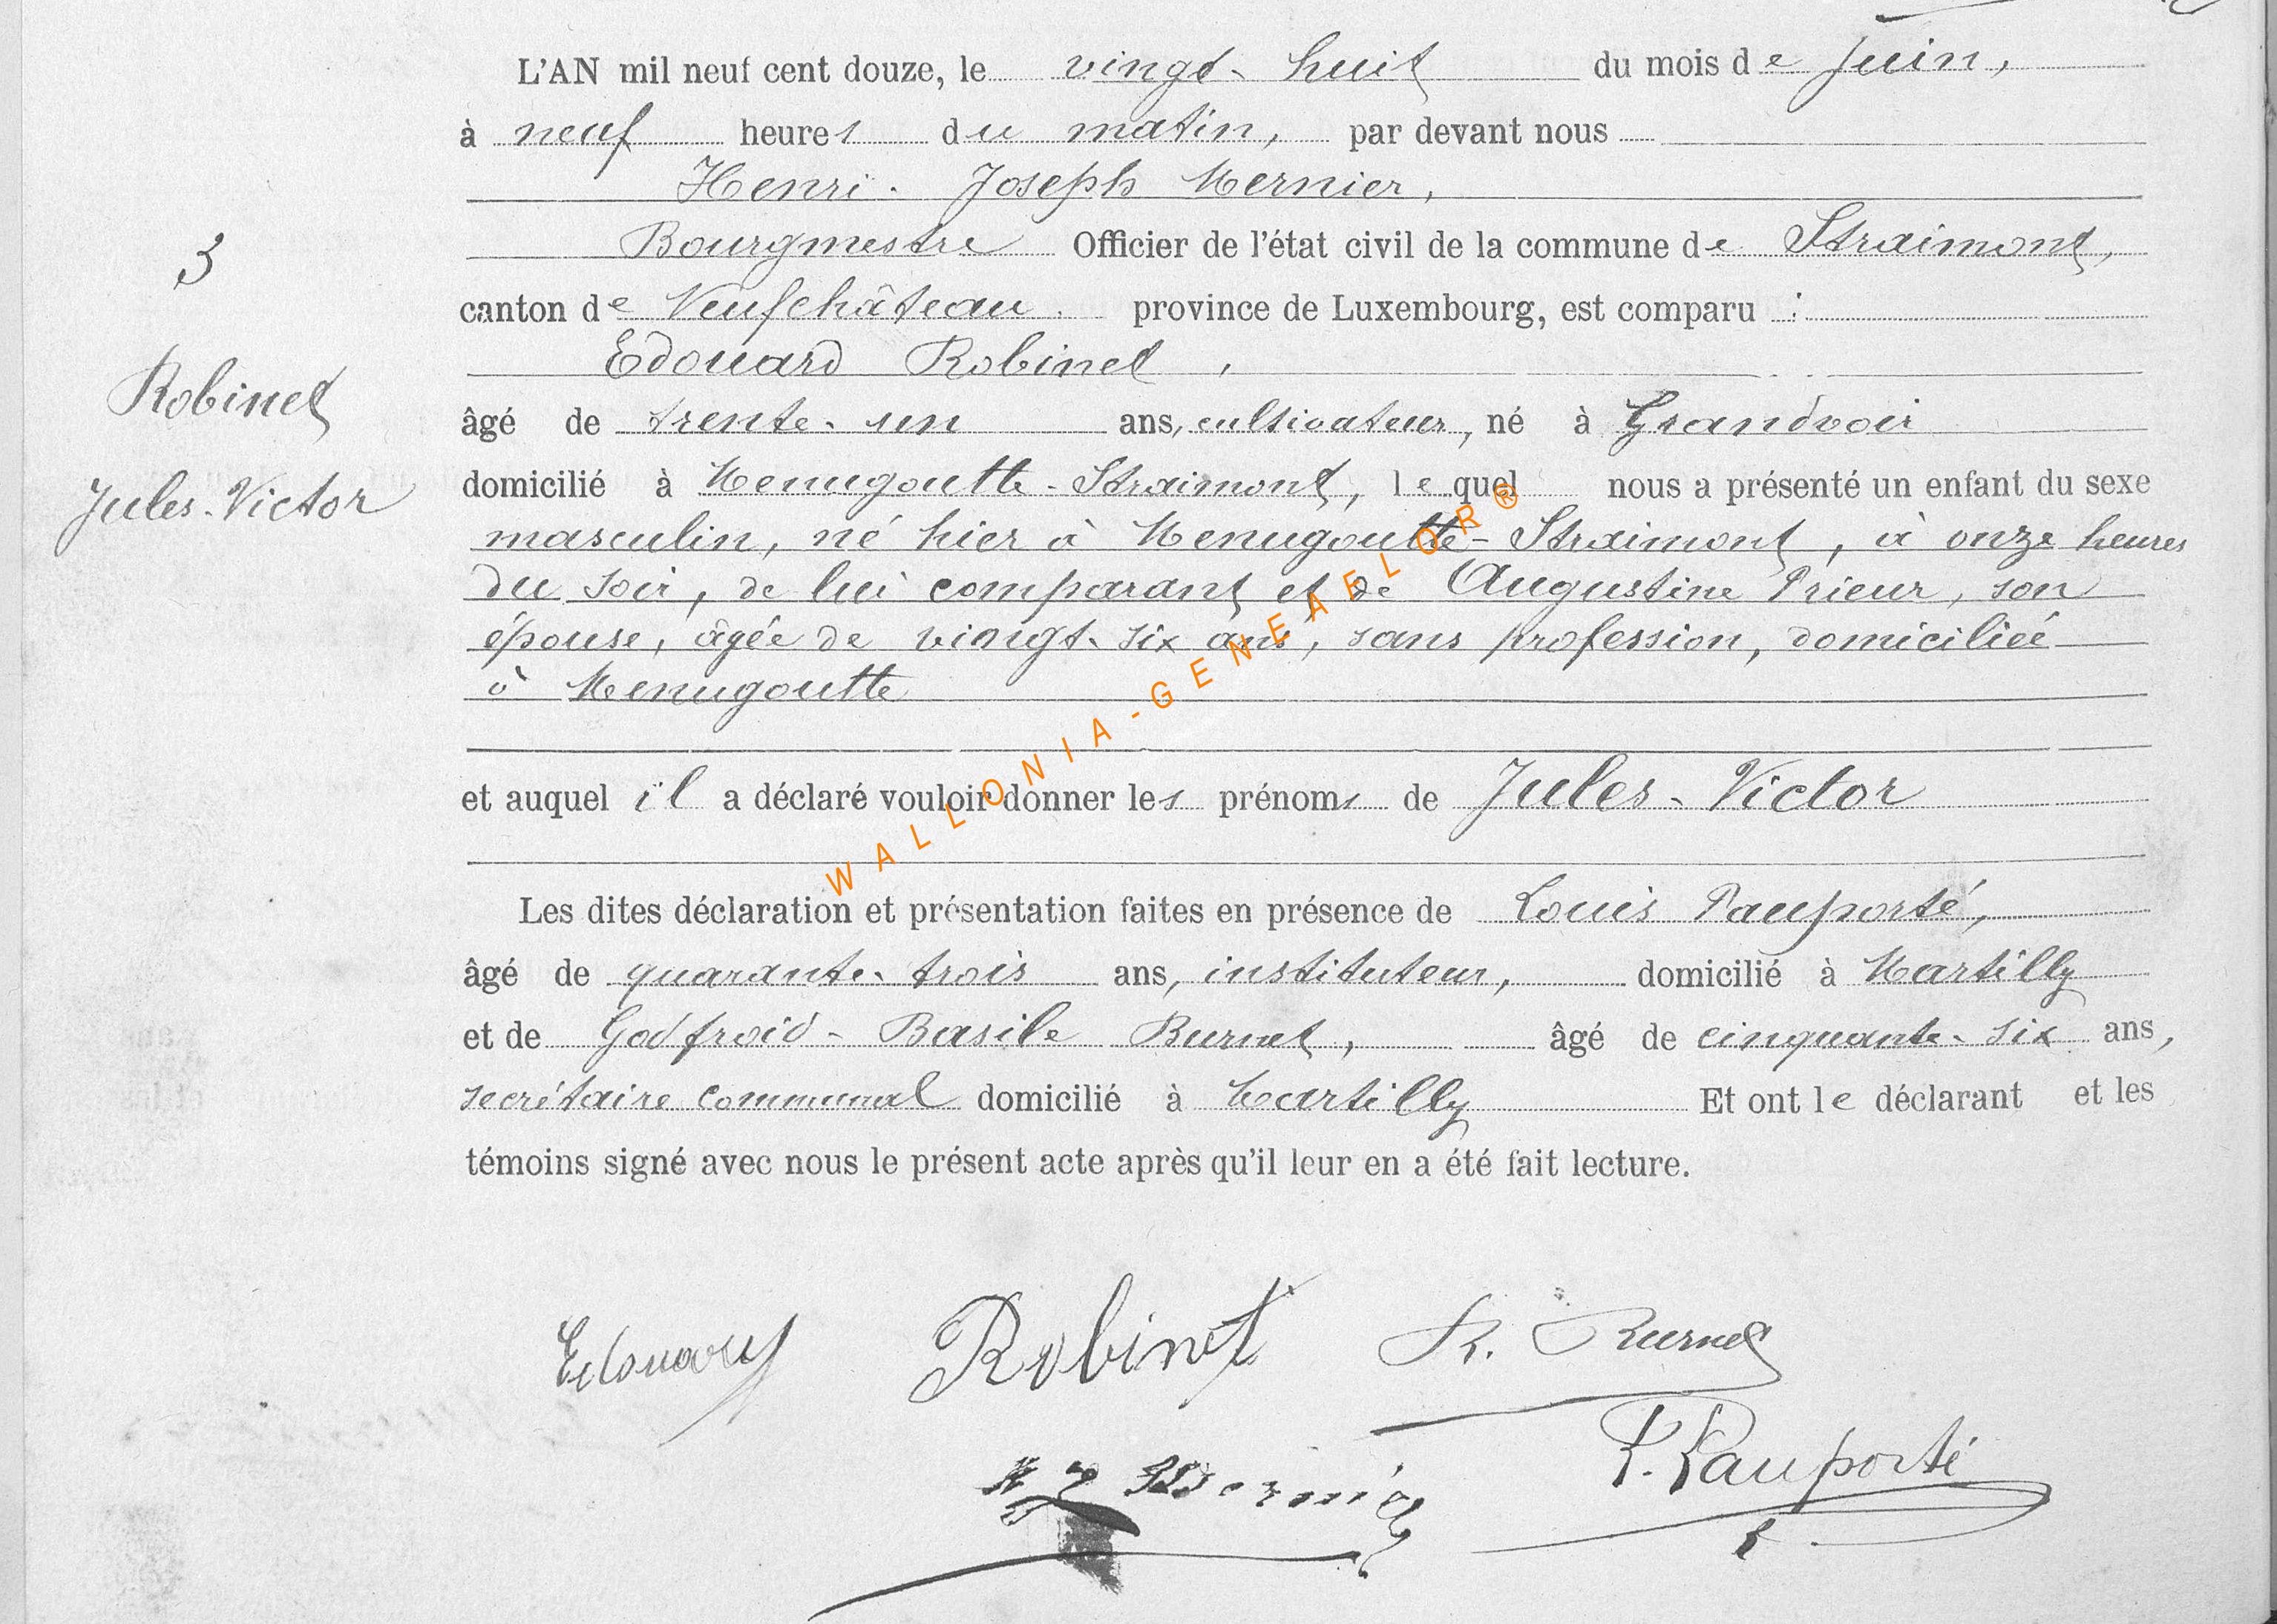 L'AN mil neuf cent douze, le vingt-huit du mois de Juin,
à neuf heures du matin, par devant nous
Henri-Joseph Mernier,
Bourgmestre Officier de l'état civil de la commune de Straimont,
3
canton de Neufchâteau province de Luxembourg, est comparu :
Edouard Robinet,
Robinet
âgé de trente-un ans, cultivateur, né à Grandvoir
Jules-Victor
domicilié à Menugoutte-Straimont, lequel nous a présenté un enfant du sexe
masculin, né hier à Menugoutte-Straimont, à onze heures
du soir, de lui comparant et de Augustine Prieur, son
épouse, âgée de vingt-six ans, sans profession, domiciliée
à Menugoutte
et auquel il a déclaré vouloir donner les prénoms de Jules-Victor
Les dites déclaration et présentation faites en présence de Louis Pauporté,
âgé de quarante-trois ans, instituteur, domicilié à Martilly
et de Godfroid-Basile Burnet, âgé de cinquante-six ans,
secrétaire communal domicilié à Martilly Et ont le déclarant et les
témoins signé avec nous le présent acte après qu'il leur en a été fait lecture.
Edouard Robinet Burnet
L. Pauporté
H J Mernier
WALLONIA-GENEAELOR®